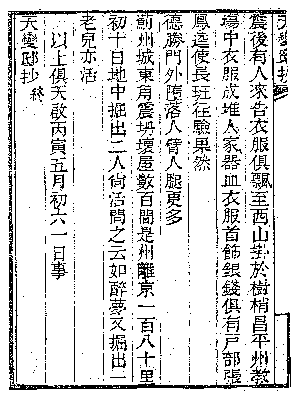 天變邸抄
震後有人來告衣服俱飄至西山掛於樹梢昌平州教
塲中衣服成堆人家器皿衣服首飾銀錢俱有戶部張
鳳逵使長班往驗果然
德勝門外墮落人臂人腿更多
薊州城東角震坍壞屋數百間是州離京一百八十里
初十日地中掘出二人尙活問之云如醉夢又掘出一
老兒亦活
以上俱天啟丙寅五月初六一日事
天變邸抄終